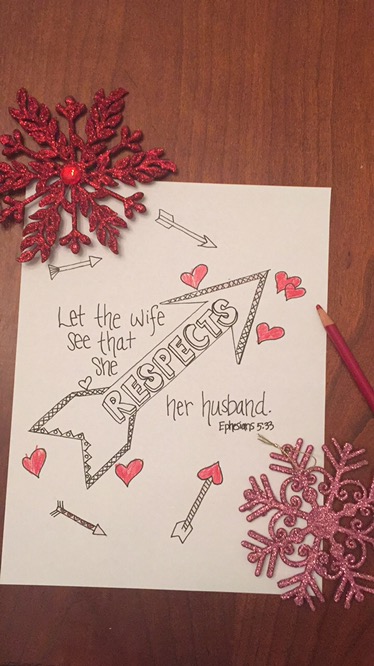 Let the wife
see that
she
RESPECTS
her husband.
Ephesians 5:33